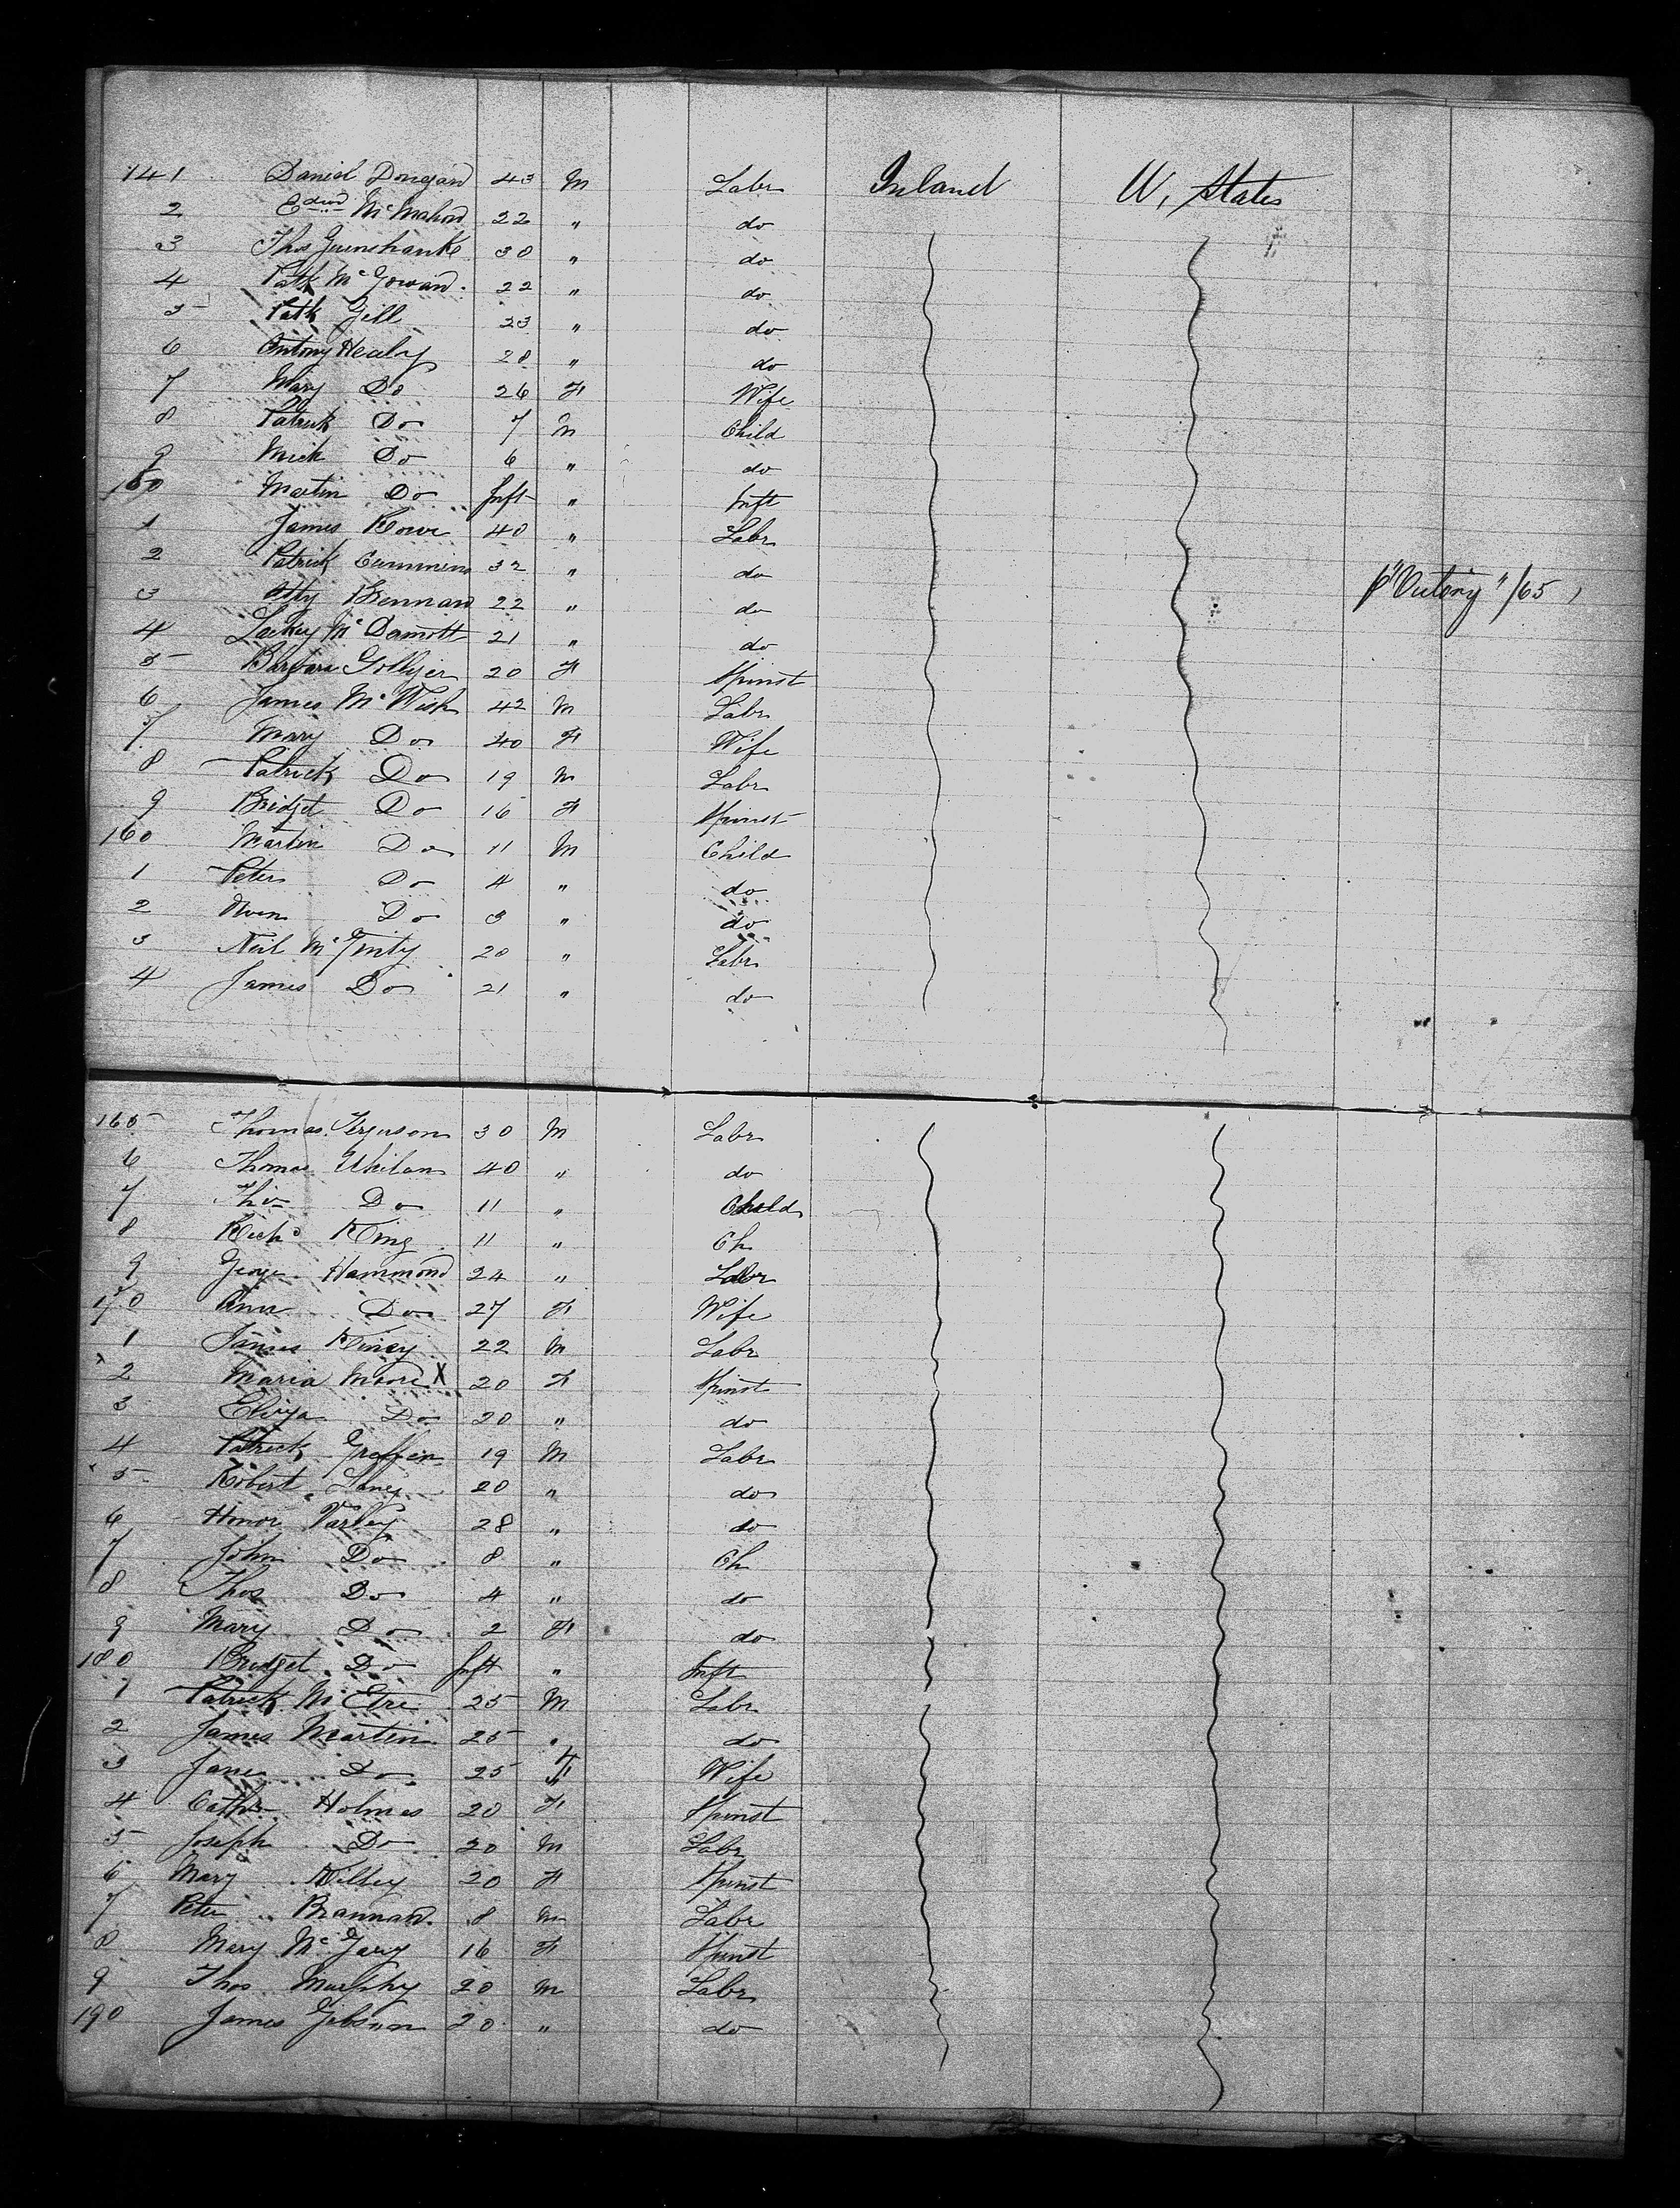 141 Daniel Donegan 43 M Labr Ireland U, States
2 Edwd McMahon 22 " do
3 Thos Greenshanke 30 " do
4 Patk McGowan 22 " do
5 Patk Gill 23 " do
6 Antony Healy 28 " do
7 Mary Do 26 F Wife
8 Patrick Do 7 M Child
9 Mick Do 6 " do
150 Martin Do Inft " Inft
1 James Rowe 40 " Labr
2 Patrick Cummins 32 " do p "Victory" /65
3 Brennan 22 " do
4 Lackey McDamott 21 " do
5 Barbara 20 F Spinst
6 James 42 M Labr
7 Mary Do 40 F Wife
8 Patrick Do 19 M Labr
9 Bridget Do 16 F Spinst
160 Martin Do 11 M Child
1 Peter Do 4 " do
2 Owen Do 3 " do
3 Neil McGinty 20 " Labr
4 James Do 21 " do
165 Thomas Ferguson 30 M Labr
6 Thomas Whilan 40 " do
7 Thos Do 11 " Child
8 Richd King 11 " Ch
9 George Hammond 24 " Labr
170 Ann Do 27 F Wife
1 James Kincy 22 M Labr
2 Maria Moore X 20 F Spinst
3 Eliza Do 20 " do
4 Patrick Graffin 19 M Labr
5 Robert Laney 20 " do
6 Honor Varley 28 " do
7 John Do 8 " Ch
8 Thos Do 4 " do
9 Mary Do 2 F do
180 Bridget Do Inft " Inft
1 Patrick 25 M Labr
2 James Martin 25 " do
3 Jane Do 25 F Wife
4 Cathr Holmes 20 F Spinst
5 Joseph Do 20 M Labr
6 Mary Kilbey 20 F Spinst
7 Peter Brannan 8 M Labr
8 Mary McGary 16 F Spinst
9 Thos Murphy 20 M Labr
190 James Gibson 20 " do